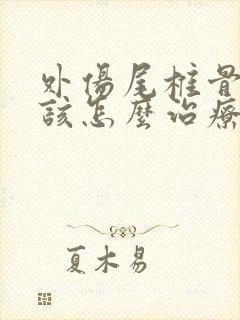 外傷尾椎骨
該怎麼治療
夏木易